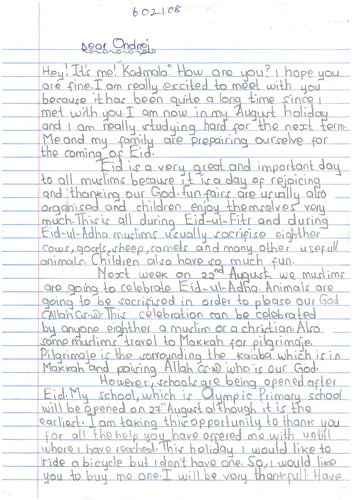 602108
Dear Ondrej
Hey! It's me! "Kadmala" How are you? I hope you
are fine. I am really excited to meet with you
because it has been quite a long time since I
met with you. I am now in my August holiday
and I am really studying hard for the next term.
Me and my family are prepairing ourselve for
the coming of Eid.
Eid is a very great and important day
to all muslims because it is a day of rejoicing
and thanking our God. fun fairs are usually also
organised and children enjoy themselves very
much. This is all during Eid-ul-Fitr and during
Eid-ul-Adha muslims usually sacrifise eighther
cows, goats, sheep, camels and many other usefull
animals. Children also have so much fun.
Next week on 22nd August we muslims
are going to celebrate Eid-ul-Adha. Animals are
going to be sacrifised in order to please our God
(Allah (s.w)) This celebration can be celebrated
by anyone eighther a muslim or a christian. Also
some muslims travel to Makkah for pilgrimaje.
Pilgrimaje is the sorrounding the kaaba which is in
Makkah and praising Allah (s.w) who is our God.
However, schools are being opened after
Eid. My school, which is Olympic Primary school
will be opened on 27th August although it is the
earliest. I am taking this opportunity to thank you
for all the help you have offered me with untill
where I have reached. This holiday I would like to
ride a bicycle but I don't have one. So, I would like
you to buy me one. I will be very thankfull. Have